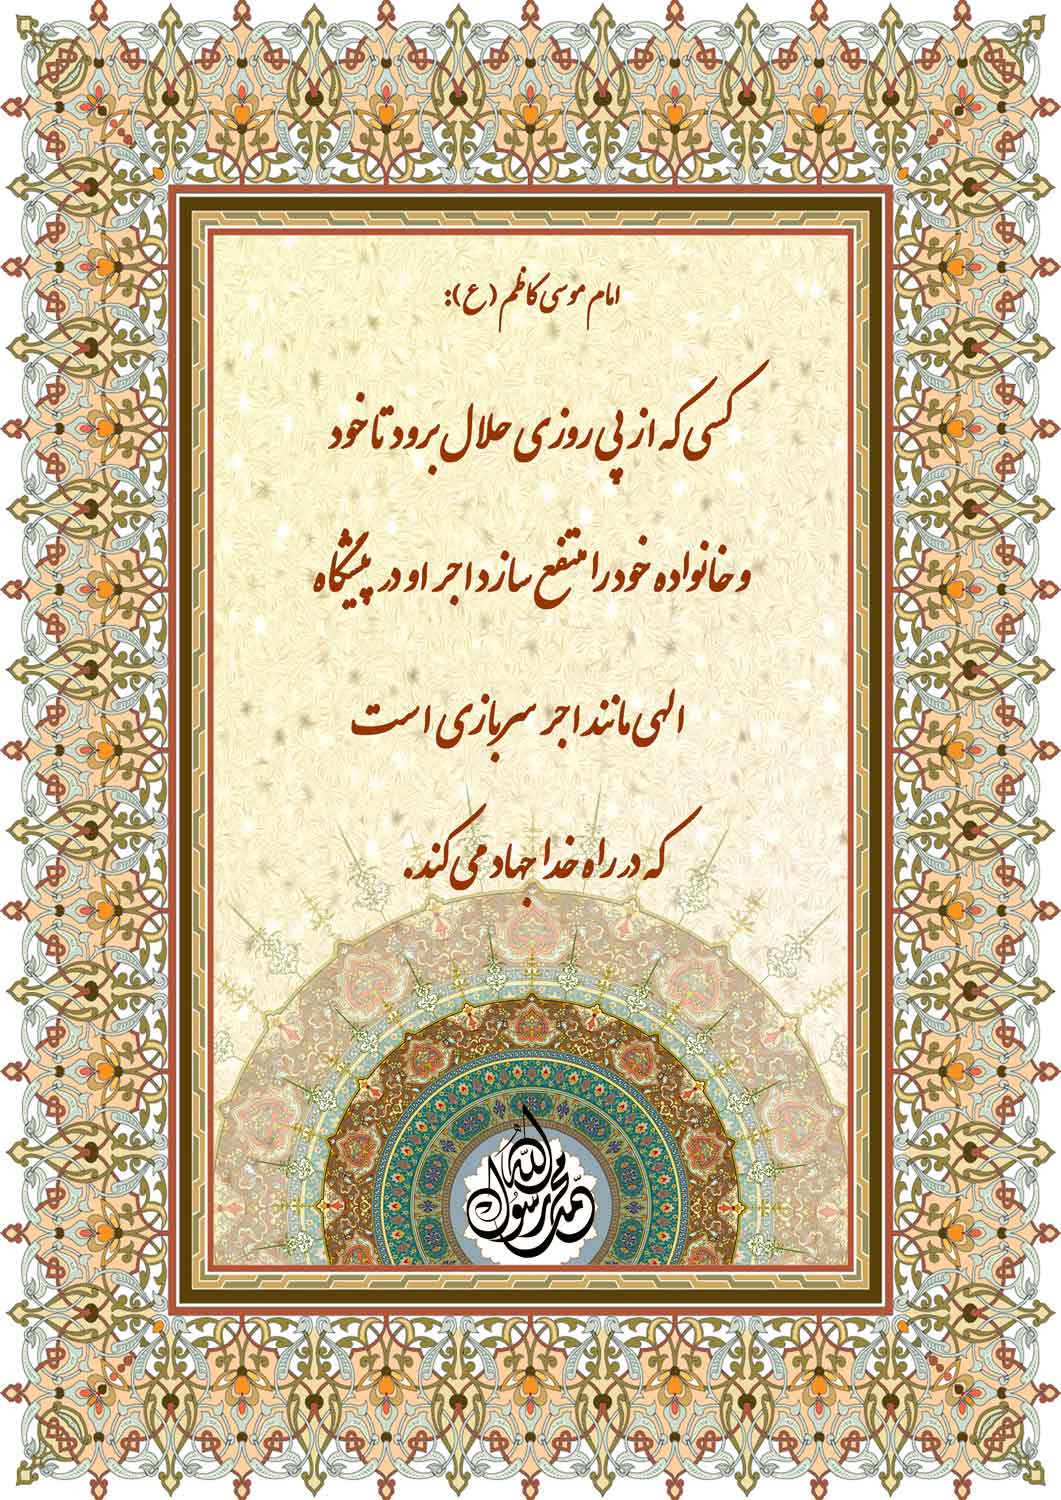 امام موسی کاظم (ع):
کسی که از پی روزی حلال برود تا خود
و خانواده خود را منتفع سازد اجر او در پیشگاه
الهی مانند اجر سربازی است
که در راه خدا جهاد می کند.
محمد رسول الله